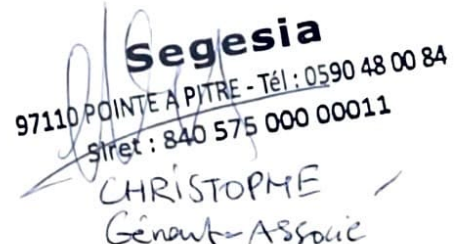 Segesia
97110 POINTE A PITRE - Tél : 0590 48 00 84
Siret : 840 575 000 00011
CHRISTOPHE
Gérant-Associé